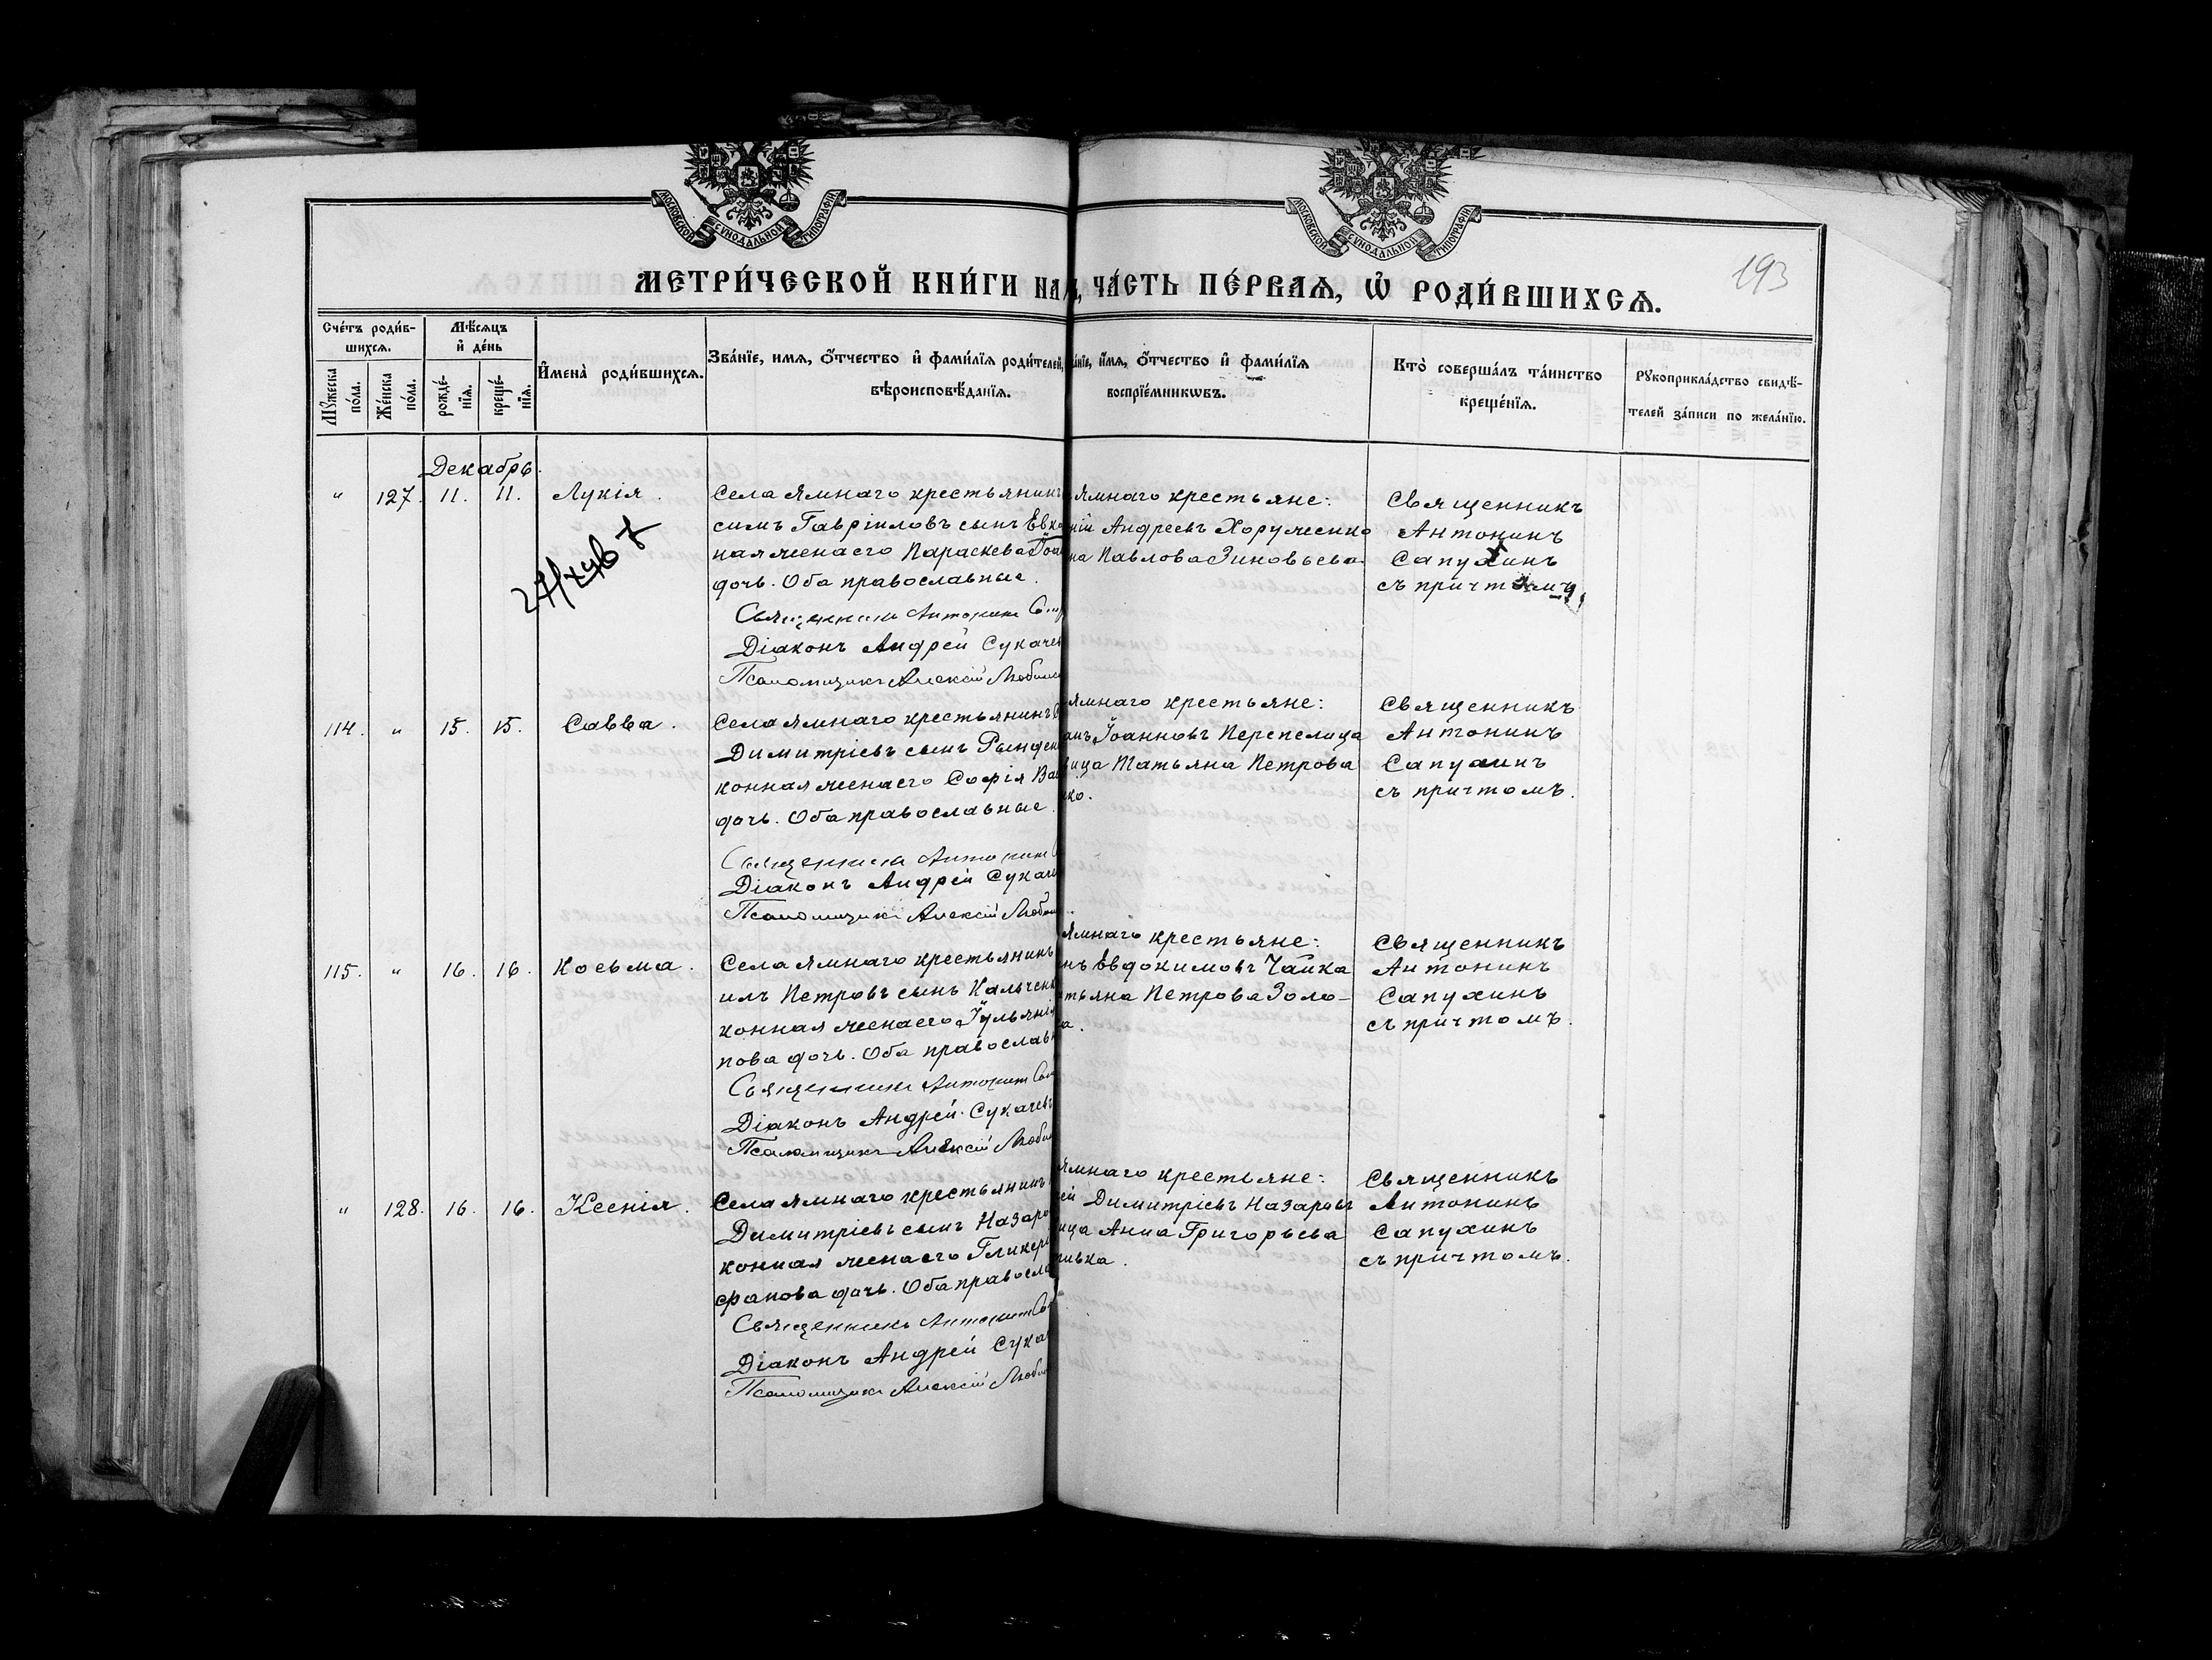 МОСКОВСКОЙ СѴНОДАЛЬНОЙ ТИПОГРАФІИ
МОСКОВСКОЙ СѴНОДАЛЬНОЙ ТИПОГРАФІИ
193
МЕТРИ́ЧЕСКОЙ КНИ́ГИ НА
ЧА́СТЬ ПЕ́РВАѦ, Ѡ҆ РОДИ́ВШИХСѦ.
Сче́тъ роди́в-
шихсѧ.
Мѣ́сѧцъ
и҆ де́нь
Мꙋ́жеска
по́ла.
Же́нска
по́ла.
рожде́-
нїѧ.
креще́-
нїѧ.
И҆мена̀ роди́вшихсѧ.
Зва́нїе, имѧ, ѻ҆́тчество и҆ фами́лїѧ роди́телей,
вѣроисповѣ́данїѧ.
а́нїе, и҆́мѧ, ѻ҆́тчество и҆ фами́лїѧ
воспрїе́мникѡвъ.
Кто̀ соверша́лъ та́инство
креще́нїѧ.
Рꙋкоприкла́дство свидѣ́-
телей за́писи по жела́нїю.
Декабрь.
" 127. 11. 11. Лукія.
Села Ямнаго крестьянинъ
симъ Гавріиловъ сынъ Евко
ная жена его Параскева Іоа
дочь. Оба православные.
Священникъ Антонинъ
Діаконъ Андрей Сукачев
Псаломщикъ Алексій Любим
Ямнаго крестьяне:
ній Андреевъ Хоруженко
на Павлова Зиновьева
Священникъ
Антонинъ
Сапухинъ
съ причтомъ.
114. " 15. 15. Савва.
Села Ямнаго крестьянинъ
Димитріевъ сынъ Рынден
конная жена его Софія Ва
дочь. Оба православные.
Священникъ Антонинъ
Діаконъ Андрей Сукаче
Псаломщикъ Алексій Любим
Ямнаго крестьяне:
анъ Іоанновъ Перепелица
вица Татьяна Петрова
ко.
Священникъ
Антонинъ
Сапухинъ
съ причтомъ.
115. " 16. 16. Косьма.
Села Ямнаго крестьянинъ
илъ Петровъ сынъ Кальченк
конная жена его Іульянія
пова дочь. Оба православн
Священникъ Антонинъ Сап
Діаконъ Андрей Сукачевъ
Псаломщикъ Алексій Любим
Ямнаго крестьяне:
нъ Евдокимовъ Чайка
тьяна Петрова Золо-
а.
Священникъ
Антонинъ
Сапухинъ
съ причтомъ.
" 128. 16. 16. Ксенія.
Села Ямнаго крестьянинъ
Димитріевъ сынъ Назаро
конная жена его Гликері
фанова дочь. Оба правосла
Священникъ Антонинъ Са
Діаконъ Андрей Сука
Псаломщикъ Алексій Любим
Ямнаго крестьяне:
ей Димитріевъ Назаровъ
ица Анна Григорьева
ивка.
Священникъ
Антонинъ
Сапухинъ
съ причтомъ.